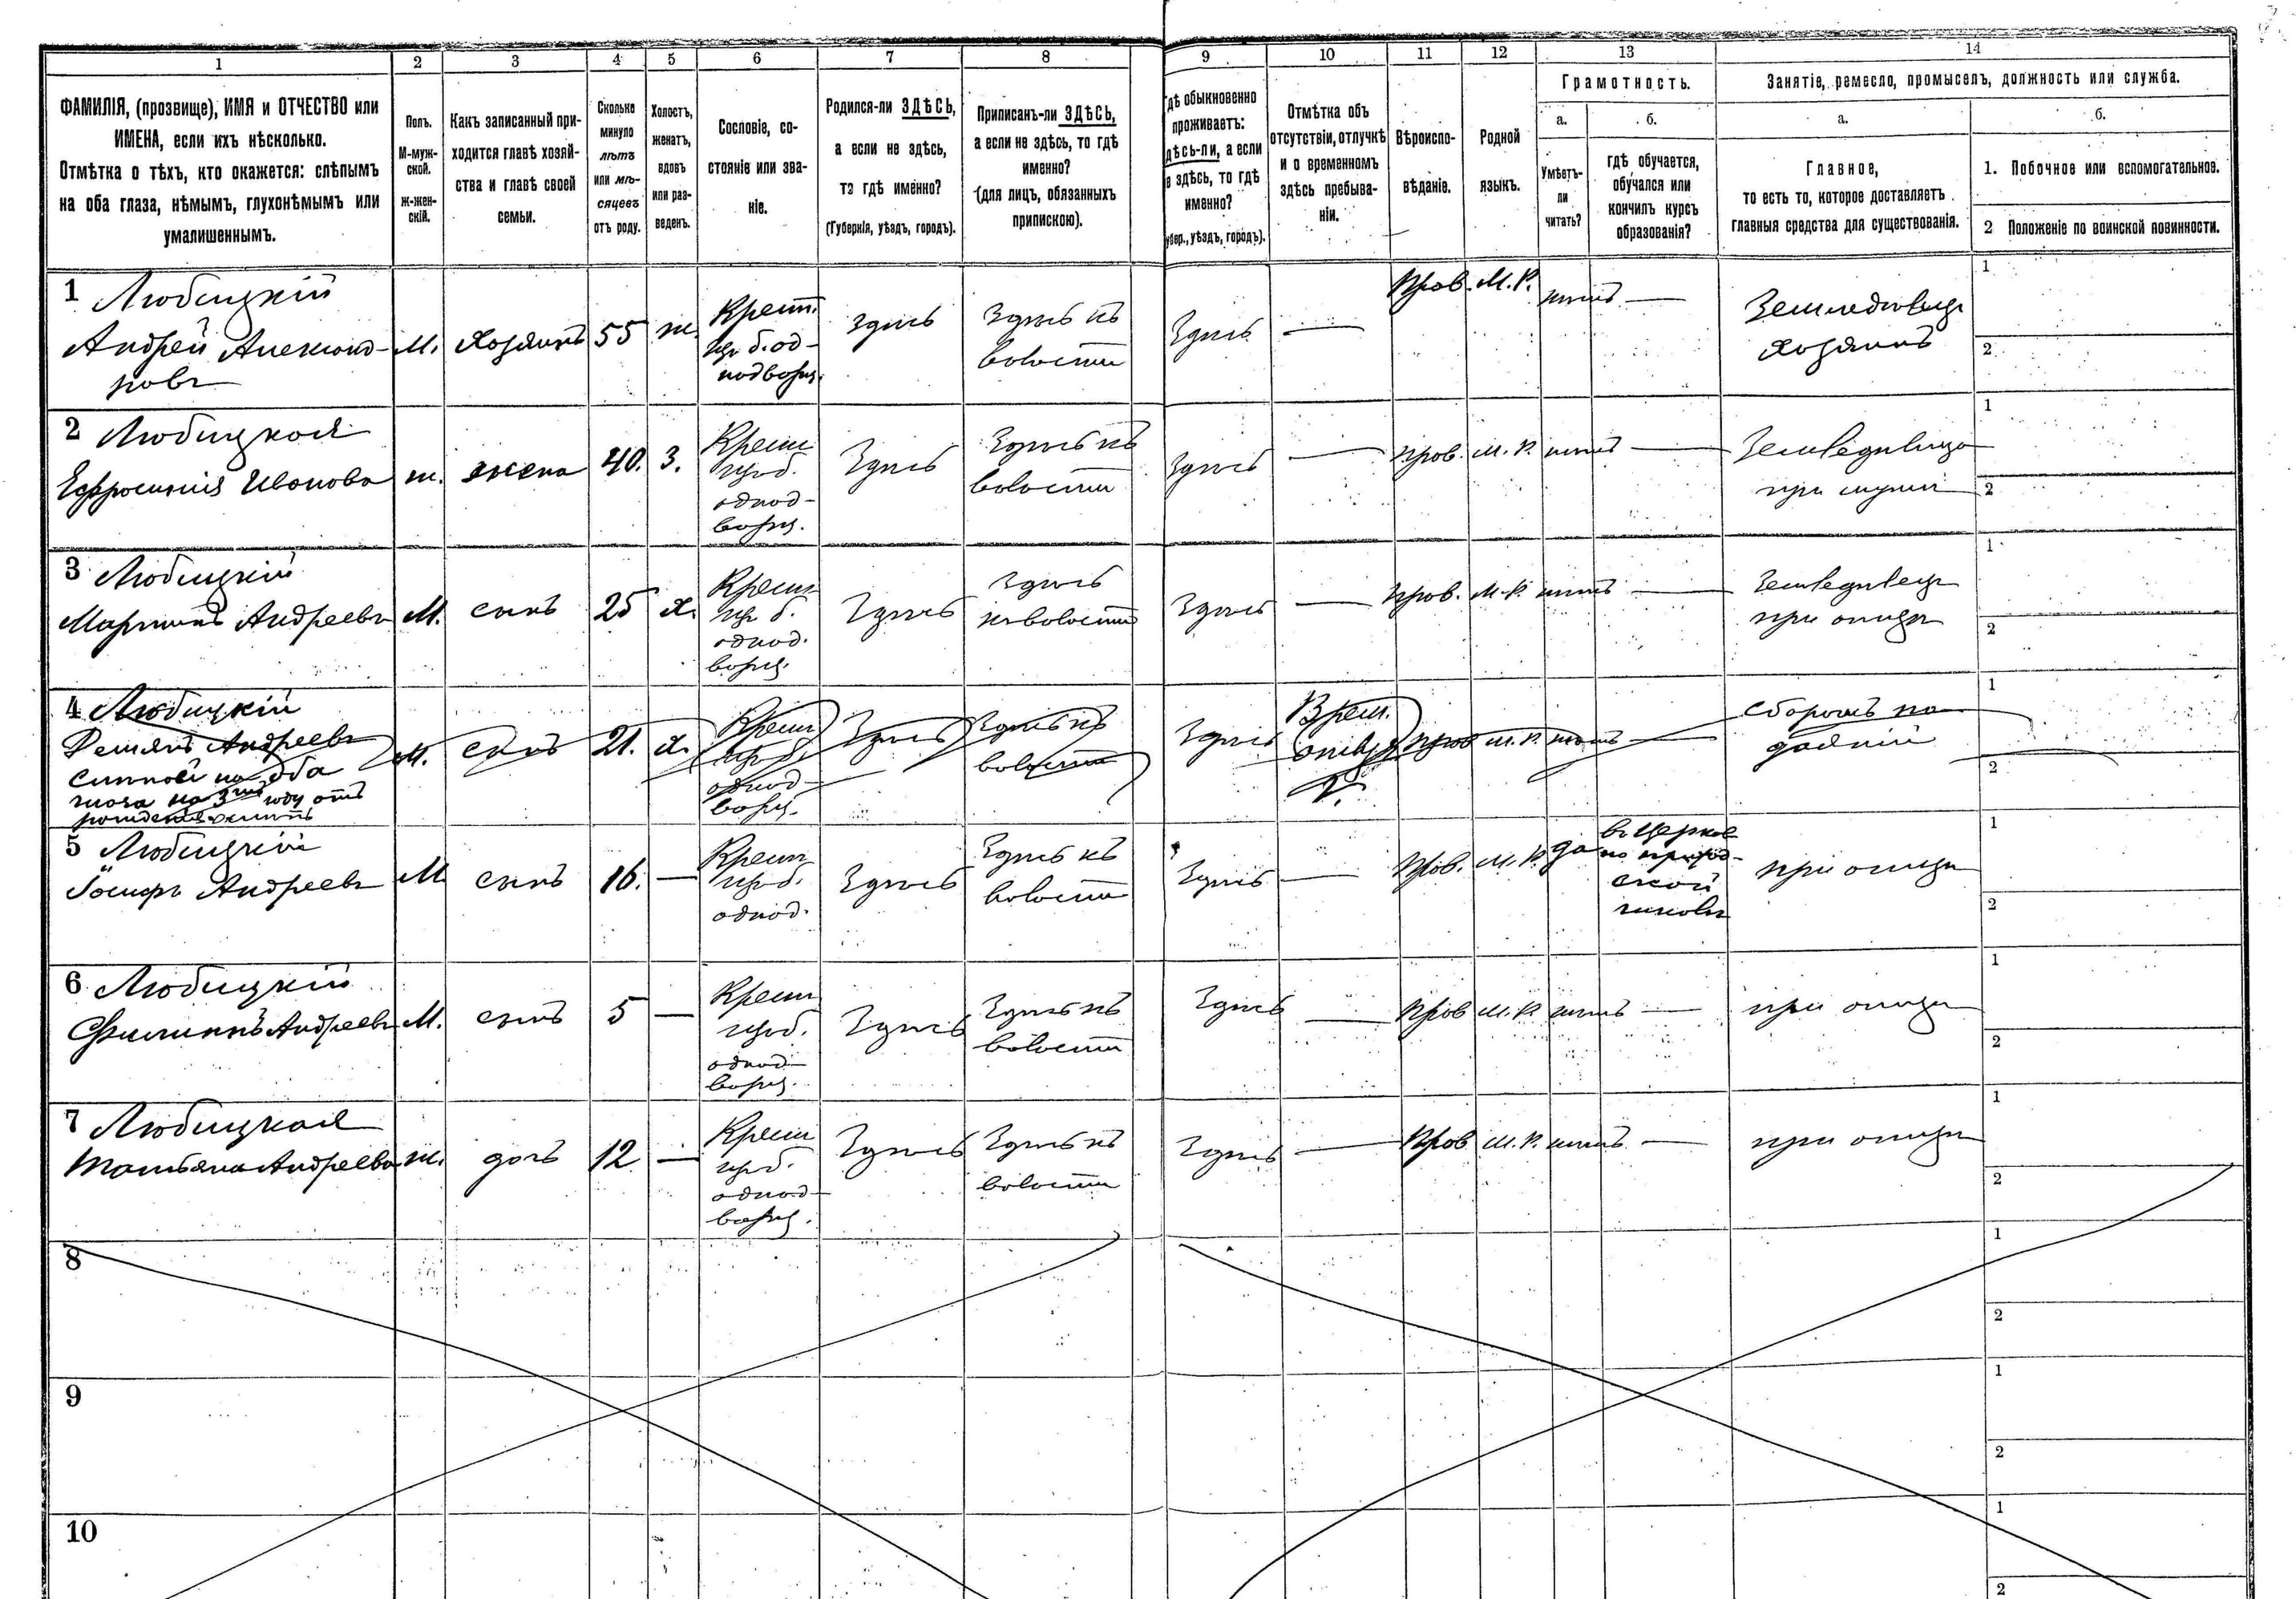 1
2
3
4
5
6
7
8
9
10
11
12
13
14
ФАМИЛІЯ, (прозвище), ИМЯ и ОТЧЕСТВО или
ИМЕНА, если ихъ нѣсколько.
Отмѣтка о тѣхъ, кто окажется: слѣпымъ
на оба глаза, нѣмымъ, глухонѣмымъ или
умалишеннымъ.
Полъ.
М-муж-
ской.
Ж-жен-
скій.
Какъ записанный при-
ходится главѣ хозяй-
ства и главѣ своей
семьи.
Сколько
минуло
лѣтъ
или мѣ-
сяцевъ
отъ роду.
Холостъ,
женатъ,
вдовъ
или раз-
веденъ.
Сословіе, со-
стояніе или зва-
ніе.
Родился-ли ЗДѢСЬ,
а если не здѣсь,
то гдѣ именно?
(Губернія, уѣздъ, городъ).
Приписанъ-ли ЗДѢСЬ,
а если не здѣсь, то гдѣ
именно?
(для лицъ, обязанныхъ
припискою).
гдѣ обыкновенно
проживаетъ:
дѣсь-ли, а если
е здѣсь, то гдѣ
именно?
убер., уѣздъ, городъ).
Отмѣтка объ
отсутствіи, отлучкѣ
и о временномъ
здѣсь пребыва-
ніи.
Вѣроиспо-
вѣданіе.
Родной
языкъ.
Грамотность.
а.
б.
Умѣетъ-
ли
читать?
гдѣ обучается,
обучался или
кончилъ курсъ
образованія?
Занятіе, ремесло, промыселъ, должность или служба.
а.
б.
Главное,
то есть то, которое доставляетъ
главныя средства для существованія.
1. Побочное или вспомогательное.
2 Положеніе по воинской повинности.
1 Любицкій
Андрей Александ-
ровъ
М.
Хозяинъ
55
ж.
Крест.
из б. од-
нодворц.
Здѣсь
Здѣсь къ
волости
Здѣсь
—
Прав.
М. Р.
нѣтъ
—
Земледѣлецъ
Хозяинъ
1
2
2 Любицкая
Ефросинія Иванова
ж.
жена
40.
З.
Крест
из б.
однод-
ворц.
Здѣсь
Здѣсь къ
волости
Здѣсь
—
Прав.
М. Р.
нѣтъ
—
при мужѣ
1
2
3 Любицкій
Мартинъ Андреевъ
М.
сынъ
25
Х.
Крест
из б.
однод.
ворц.
Здѣсь
Здѣсь
къ волости
Здѣсь
—
Прав.
М. Р.
нѣтъ
—
при отцѣ
1
2
4 Любицкій
Демянъ Андреевъ
слѣпой на оба
глаза на 3мъ году отъ
рожденія
М.
сынъ
21.
Х.
Крест
из б.
однод-
ворц.
Здѣсь
Здѣсь къ
волости
Здѣсь
Врем.
прав
М. Р.
нѣтъ
—
сборомъ по-
даяній
1
2
5 Любицкій
Іосифъ Андреевъ
М
сынъ
16.
—
Крест
из б.
однод.
Здѣсь
Здѣсь къ
волости
Здѣсь
—
Прав.
М. Р.
да
въ Церков
но приход-
ской
школѣ
при отцѣ
1
2
6 Любицкій
Филиппъ Андреевъ
М.
сынъ
5
—
Крест
из б.
однод-
ворц.
Здѣсь
Здѣсь къ
волости
Здѣсь
—
Прав
М. Р.
нѣтъ
—
при отцѣ
1
2
7 Любицкая
Татьяна Андреева
ж.
дочь
12
—
Крест
из б.
однод-
ворц.
Здѣсь
Здѣсь къ
волости
Здѣсь
—
Прав
М. Р.
нѣтъ
—
при отцѣ
1
2
8
1
2
9
1
2
10
1
2